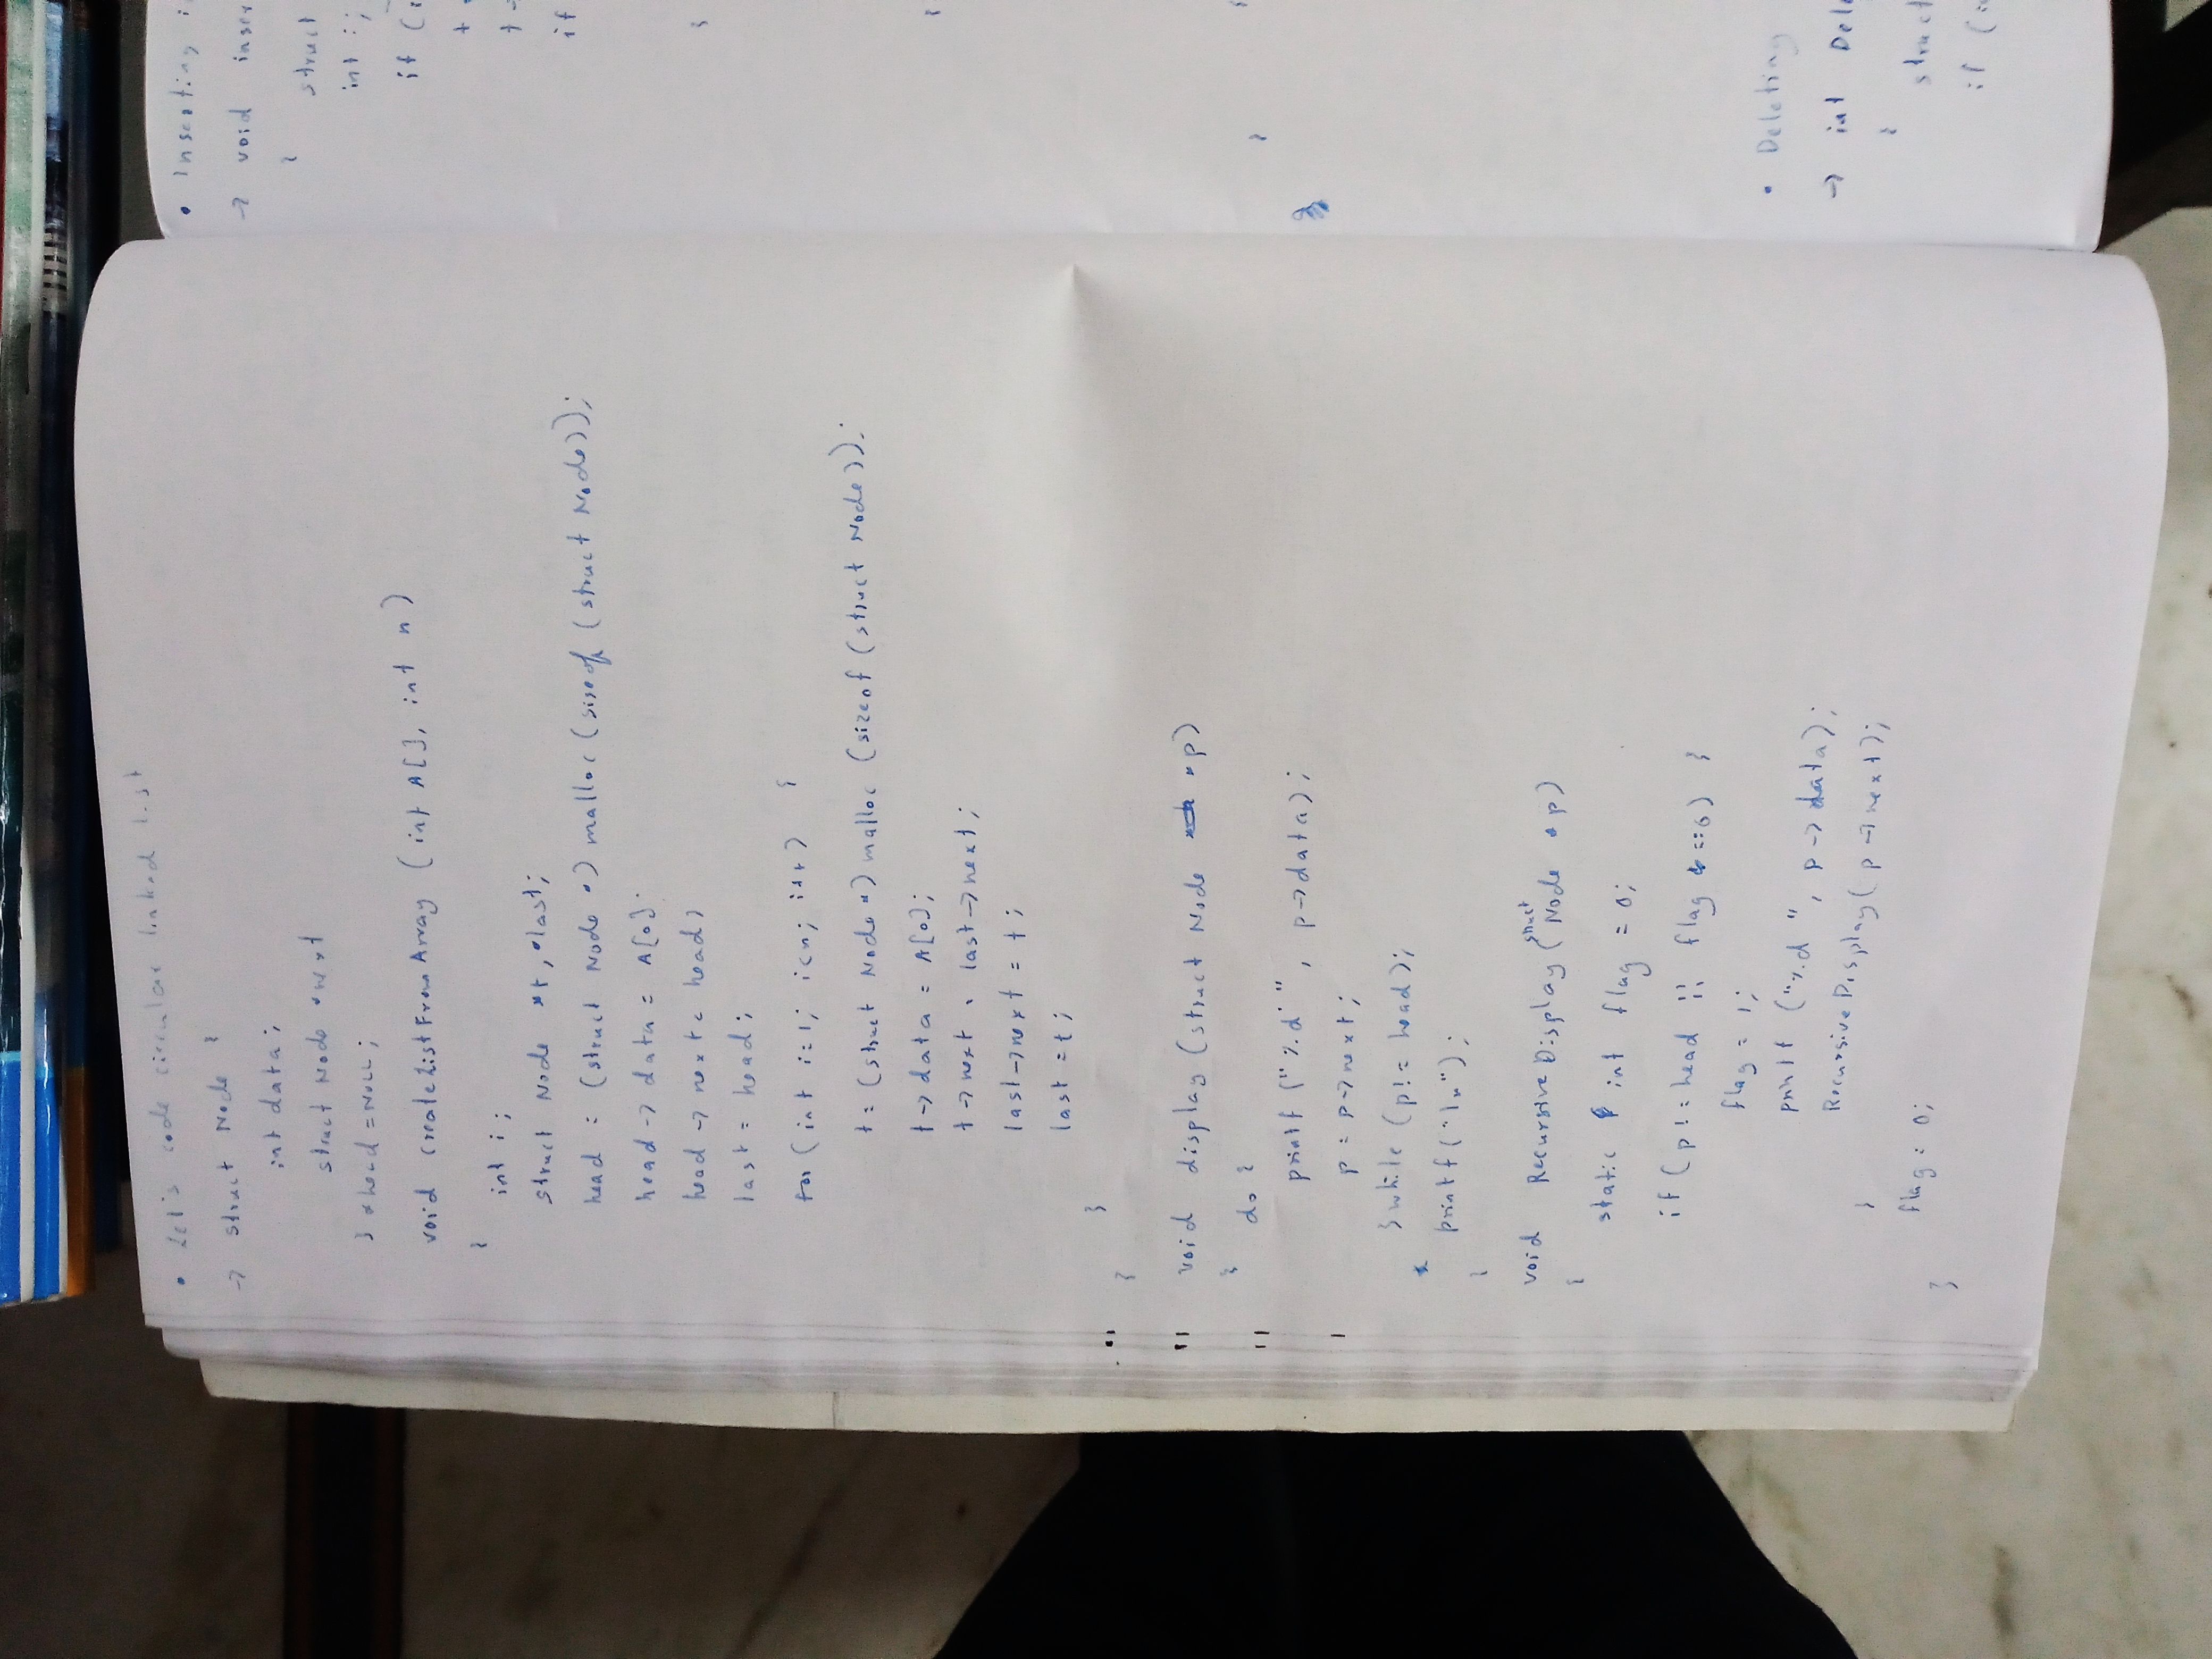 • Let's code circular linked list
→ struct Node {
int data;
struct Node *next
} *head = NULL;
void createListFromArray (int A[], int n)
{
int i;
struct Node *t, *last;
head = (struct Node *) malloc (sizeof (struct Node));
head → data = A[0];
head → next = head;
last = head;
for (int i=1; i<n; i++) {
t = (struct Node *) malloc (sizeof (struct Node));
t → data = A[0];
t → next = last → next;
last → next = t;
last = t;
}
}
void display (struct Node *p)
{ do {
printf ("%d ", p → data);
p = p → next;
} while (p != head);
printf ("\n");
}
void RecursiveDisplay (struct Node *p)
{
static int flag = 0;
if (p != head || flag == 0) {
flag = 1;
printf ("%d ", p → data);
RecursiveDisplay (p → next);
}
flag = 0;
}
• Inserting
→ void inser
{
struct
int i;
if (
if
}
}
}
• Deleting
→ int Dele
{
struct
if (